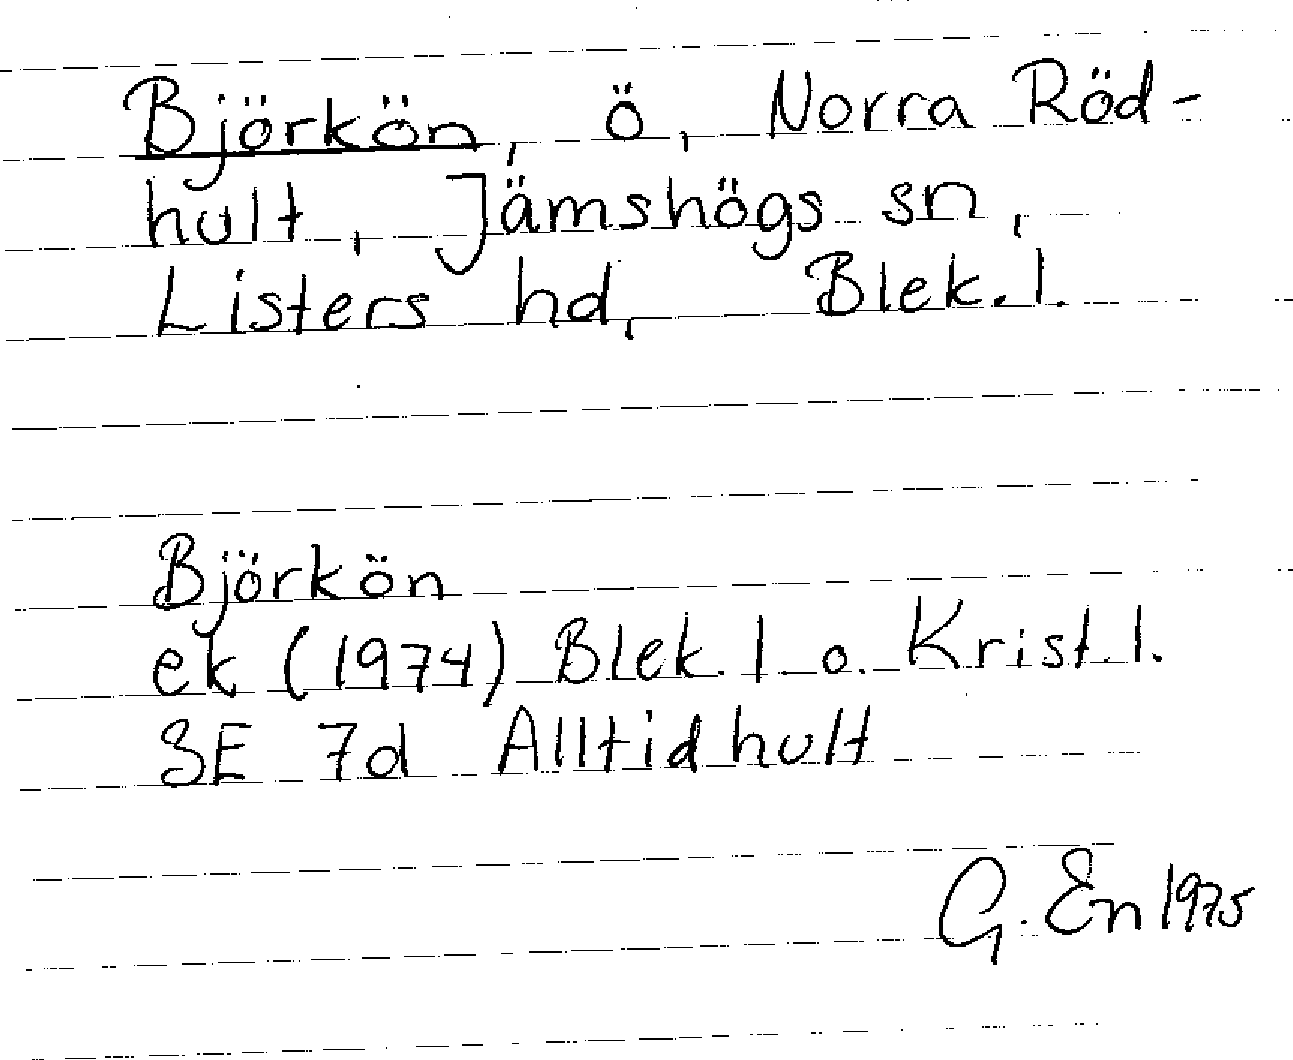 Björkön, ö, Norra Röd-
hult, Jämshögs sn,
Listers hd, Blek. l.
Björkön
ek (1974) Blek. l o. Krist. l.
3E 7d Alltidhult
G. En 1975